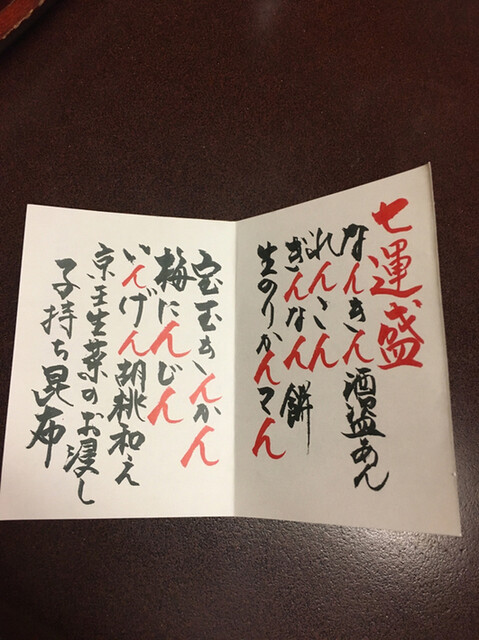 七運盛
なんきん酒盗あん
れんこん
ぎんなん餅
生のりかんてん
宝玉きんかん
梅にんじん
いんげん胡桃和え
京壬生菜のお浸し
子持ち昆布